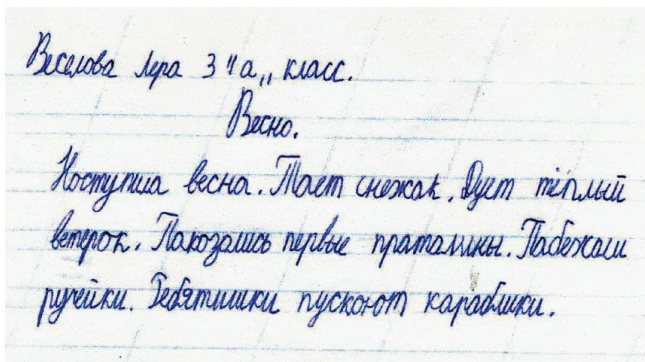 Веселова Лера 3 "а" класс.
Весно.
Ноступила весна. Тает снежак. Дует тёплый
ветерок. Пакозались первые праталины. Пабежали
ручейки. Ребятишки пускоют караблики.